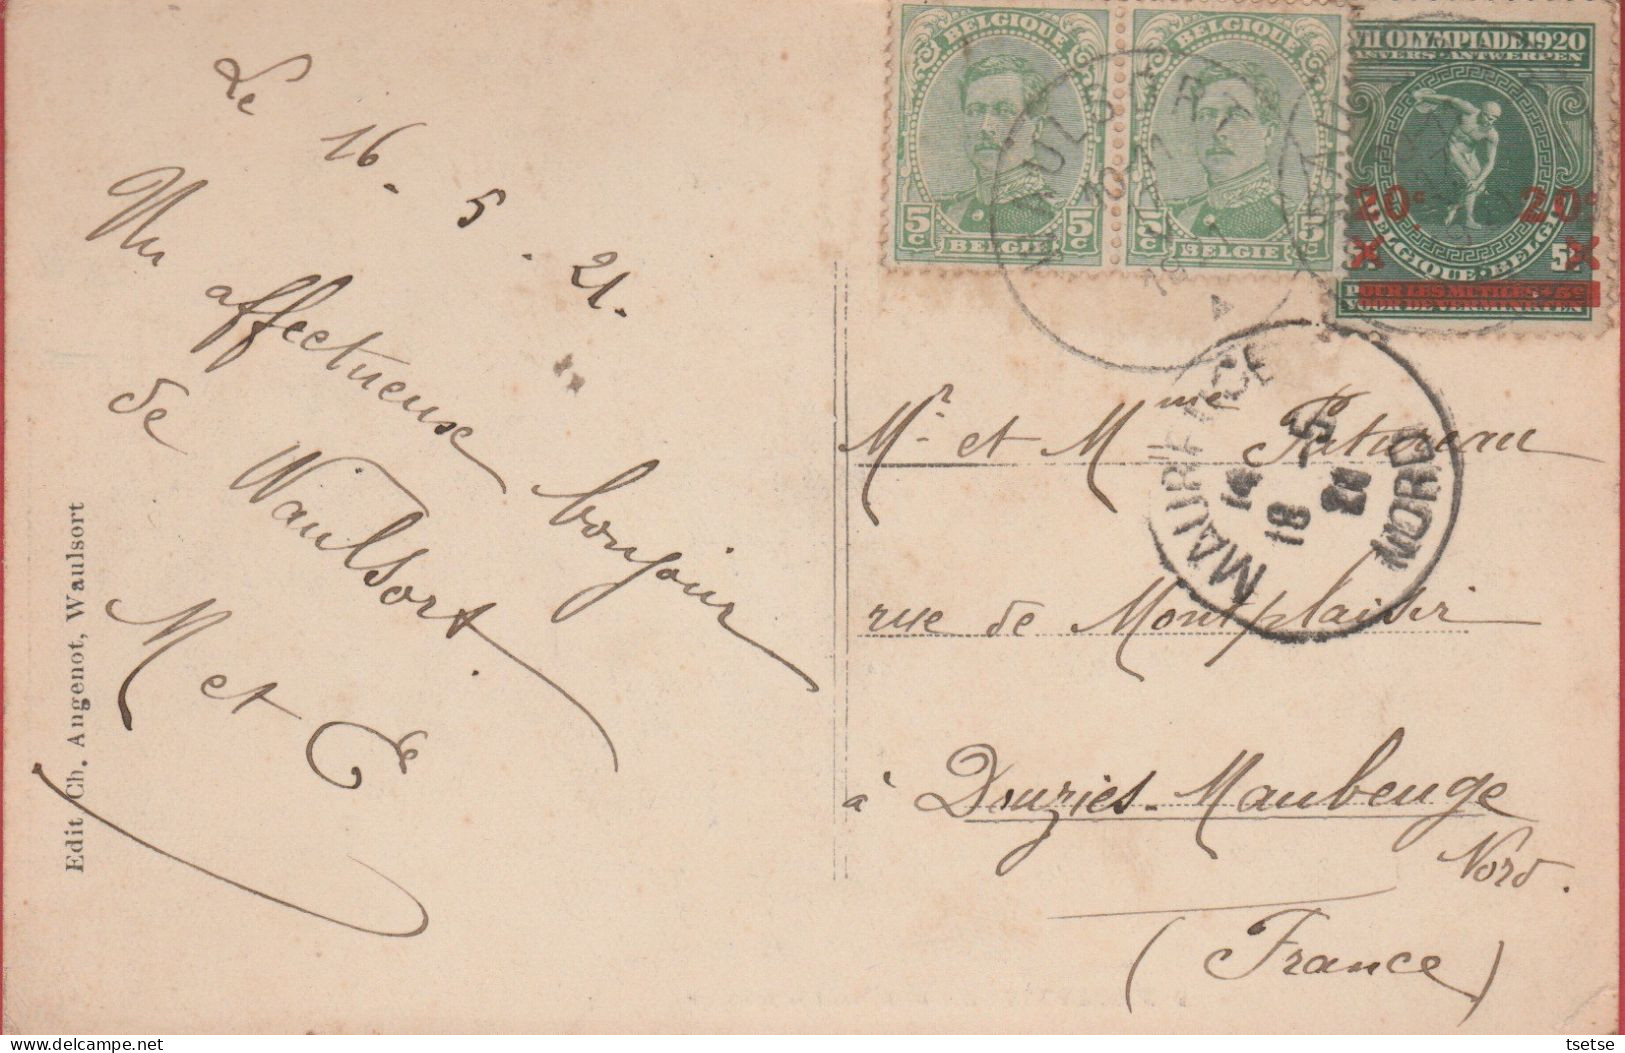 Le 16 - 5 - 21.
Un affectueux bonjour
de Waulsort
M et C
Edit Ch. Angenot, Waulsort
BELGIQUE
5c 5c
BELGIE
BELGIQUE
5c 5c
BELGIE
VII OLYMPIADE 1920
ANVERS-ANTWERPEN
20c 20c
BELGIQUE·BELGIE
POUR LES MUTILES + 5c
VOOR DE VERMINKTEN
WAULSORT
MAUBEUGE
14 - 5
18 21
NORD
Mr et Mme Patureau
rue de Montplaisir
à Douzies-Maubeuge
Nord.
(France)
tsetse